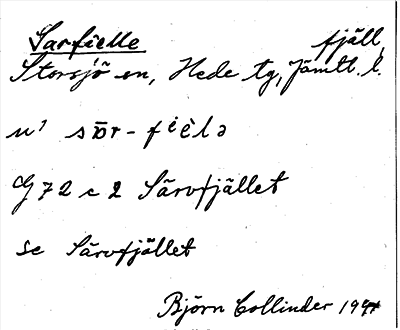 Sarfielle fjäll,
Storsjö sn, Hede tg, Jämtl. l.
G 72 c 2 Särvfjället
se Särvfjället
Björn Collinder